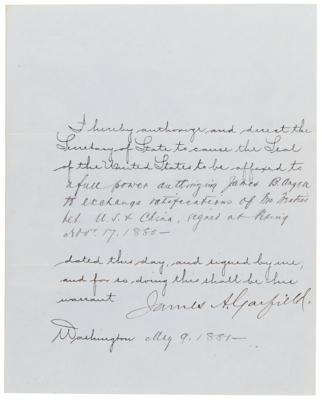 I hereby authorize and direct the
Secretary of State to cause the Seal
of the United States to be affixed to
a full power authorizing James B. Angell
to exchange ratifications of two Treaties
bet. U.S. & China, signed at Peking
Nov. 17. 1880—
dated this day, and signed by me,
and for so doing this shall be his
warrant
James A. Garfield.
Washington May 9. 1881—